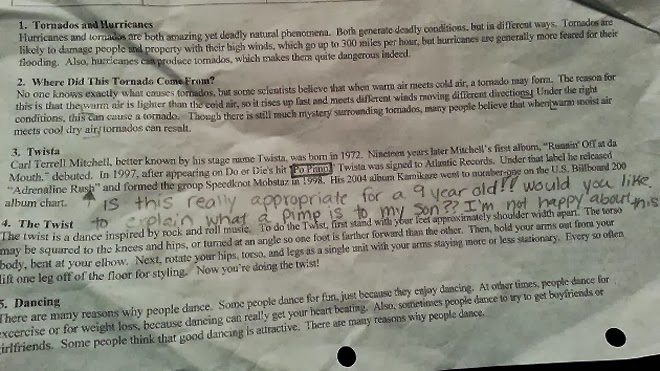 1. Tornados and Hurricanes
Hurricanes and tornados are both amazing yet deadly natural phenomena. Both generate deadly conditions, but in different ways. Tornados are
likely to damage people and property with their high winds, which go up to 300 miles per hour, but hurricanes are generally more feared for their
flooding. Also, hurricanes can produce tornados, which makes them quite dangerous indeed.
2. Where Did This Tornado Come From?
No one knows exactly what causes tornados, but some scientists believe that when warm air meets cold air, a tornado may form. The reason for
this is that the warm air is lighter than the cold air, so it rises up fast and meets different winds moving different directions. Under the right
conditions, this can cause a tornado. Though there is still much mystery surrounding tornados, many people believe that when warm moist air
meets cool dry air, tornados can result.
3. Twista
Carl Terrell Mitchell, better known by his stage name Twista, was born in 1972. Nineteen years later Mitchell's first album, "Runnin' Off at da
Mouth," debuted. In 1997, after appearing on Do or Die's hit "Po Pimp," Twista was signed to Atlantic Records. Under that label he released
"Adrenaline Rush" and formed the group Speedknot Mobstaz in 1998. His 2004 album Kamikaze went to number-one on the U.S. Billboard 200
album chart.
is this really appropriate for a 9 year old!? would you like
to explain what a pimp is to my son?? I'm not happy about this
4. The Twist
The twist is a dance inspired by rock and roll music. To do the Twist, first stand with your feet approximately shoulder width apart. The torso
may be squared to the knees and hips, or turned at an angle so one foot is farther forward than the other. Then, hold your arms out from your
body, bent at your elbow. Next, rotate your hips, torso, and legs as a single unit with your arms staying more or less stationary. Every so often
lift one leg off of the floor for styling. Now you're doing the twist!
5. Dancing
There are many reasons why people dance. Some people dance for fun, just because they enjoy dancing. At other times, people dance for
excercise or for weight loss, because dancing can really get your heart beating. Also, sometimes people dance to try to get boyfriends or
girlfriends. Some people think that good dancing is attractive. There are many reasons why people dance.